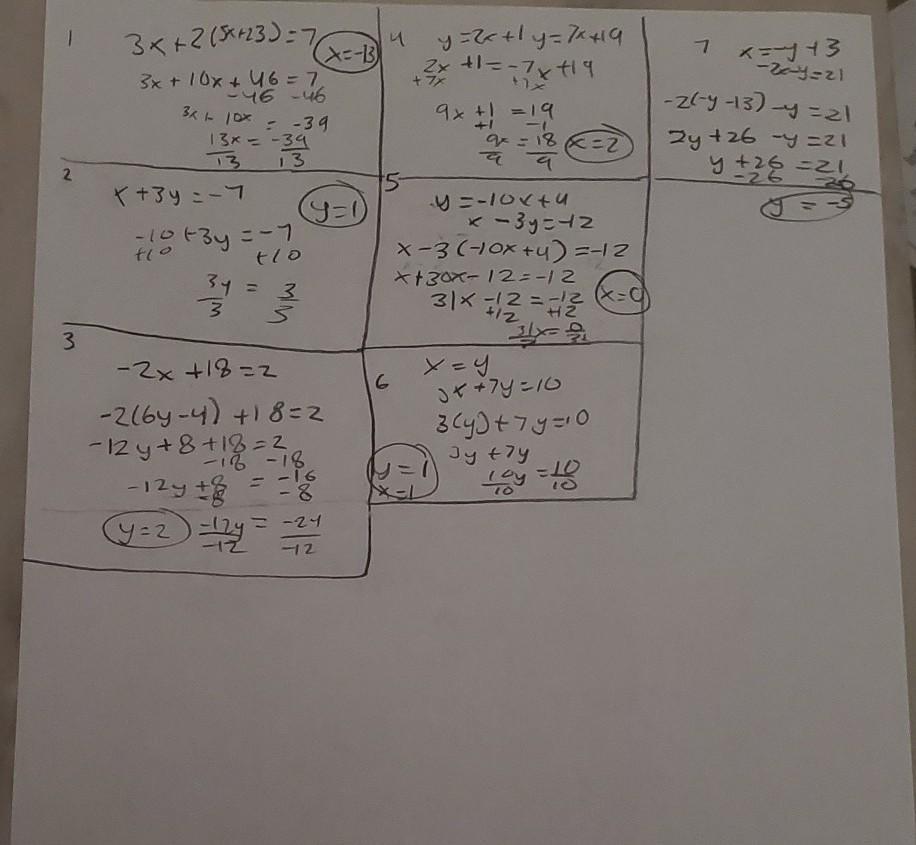 1
3x+2(5x+23)=7
x=-13
3x+10x+46=7
-46 -46
3x+10x = -39
13x = -39
13 13
2
x+3y=-7
y=1
-10+3y=-7
+10 +10
3y = 3
3
3
-2x+18=2
-2(6y-4)+18=2
-12y+8+18=2
-18 -18
-12y+8 = -16
-8 -8
y=2
-12y = -24
-12 -12
4
y=2x+1 y=7x+19
2x+1=-7x+19
+7x +7x
9x+1=19
+1 -1
9x=18
9 9
x=2
5
y=-10x+4
x-3y=-12
x-3(-10x+4)=-12
x+30x-12=-12
31x-12=-12
x=0
+12 +12
31x=0
6
x=y
3x+7y=10
3(y)+7y=10
3y+7y
10y=10
10 10
y=1
x=1
7
x=-y+3
-2x-y=21
-2(-y-13)-y=21
2y+26-y=21
y+26=21
-26 -26
y=-5